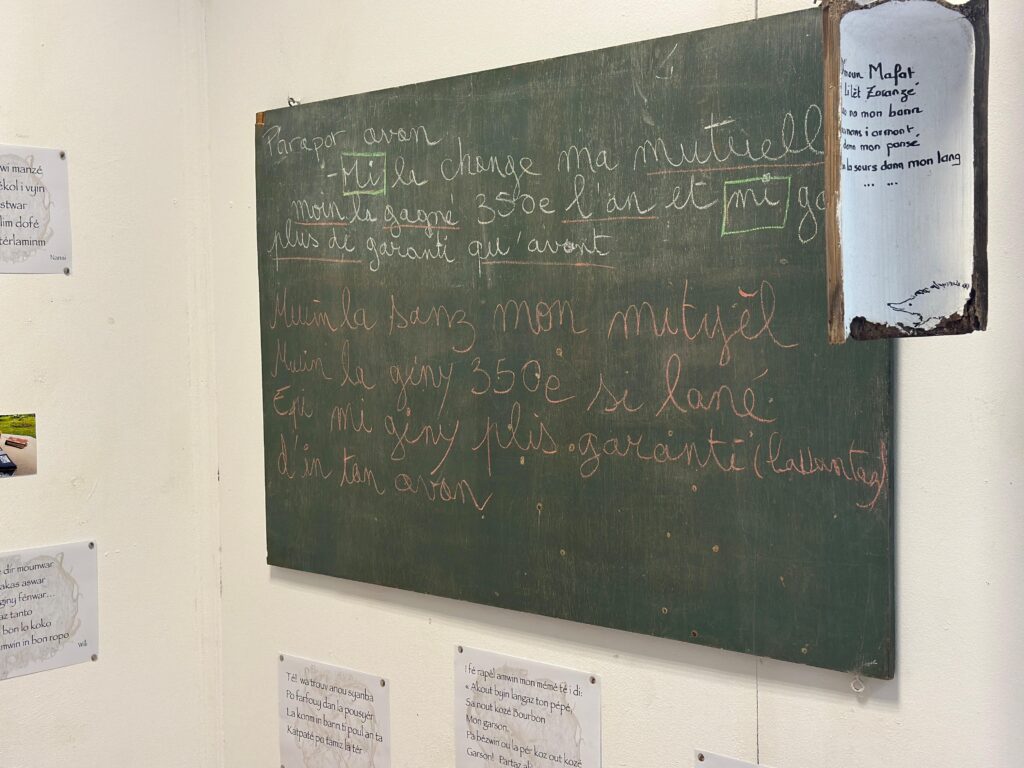 Parapor avan
- Mi la change ma mutuell
moin la gagné 350e l'an et mi ga
plus de garanti qu'avant
Muin la sanz mon mityèl
Muin la giny 350e si lané.
Epi mi giny plis garanti
d'in tan avan
moun Mafat
lilèt Zoranzé
no mon bann
i armont
dann mon pansé
la sours dann mon lang
... ...
wi manzé
ékol i vyin
stwar
lim dofé
térlaminm
Nanai
dir mounwar
akas aswar
giny férwar...
az tanto
bon lo koko
mwin in bon ropo
will
Té! wa trouv anou syanba
Po farfouy dan la pousyér
La konm in bann ti poul an ta
Katpaté po tamiz la tér
I fé rapèl amwin mon mémé té i di:
« Akout byin langaz ton pépé,
Sa nout kozé Bourbon
Mon garson.
Pa bézwin ou la pér koz out kozé
Garson! Partaz ali